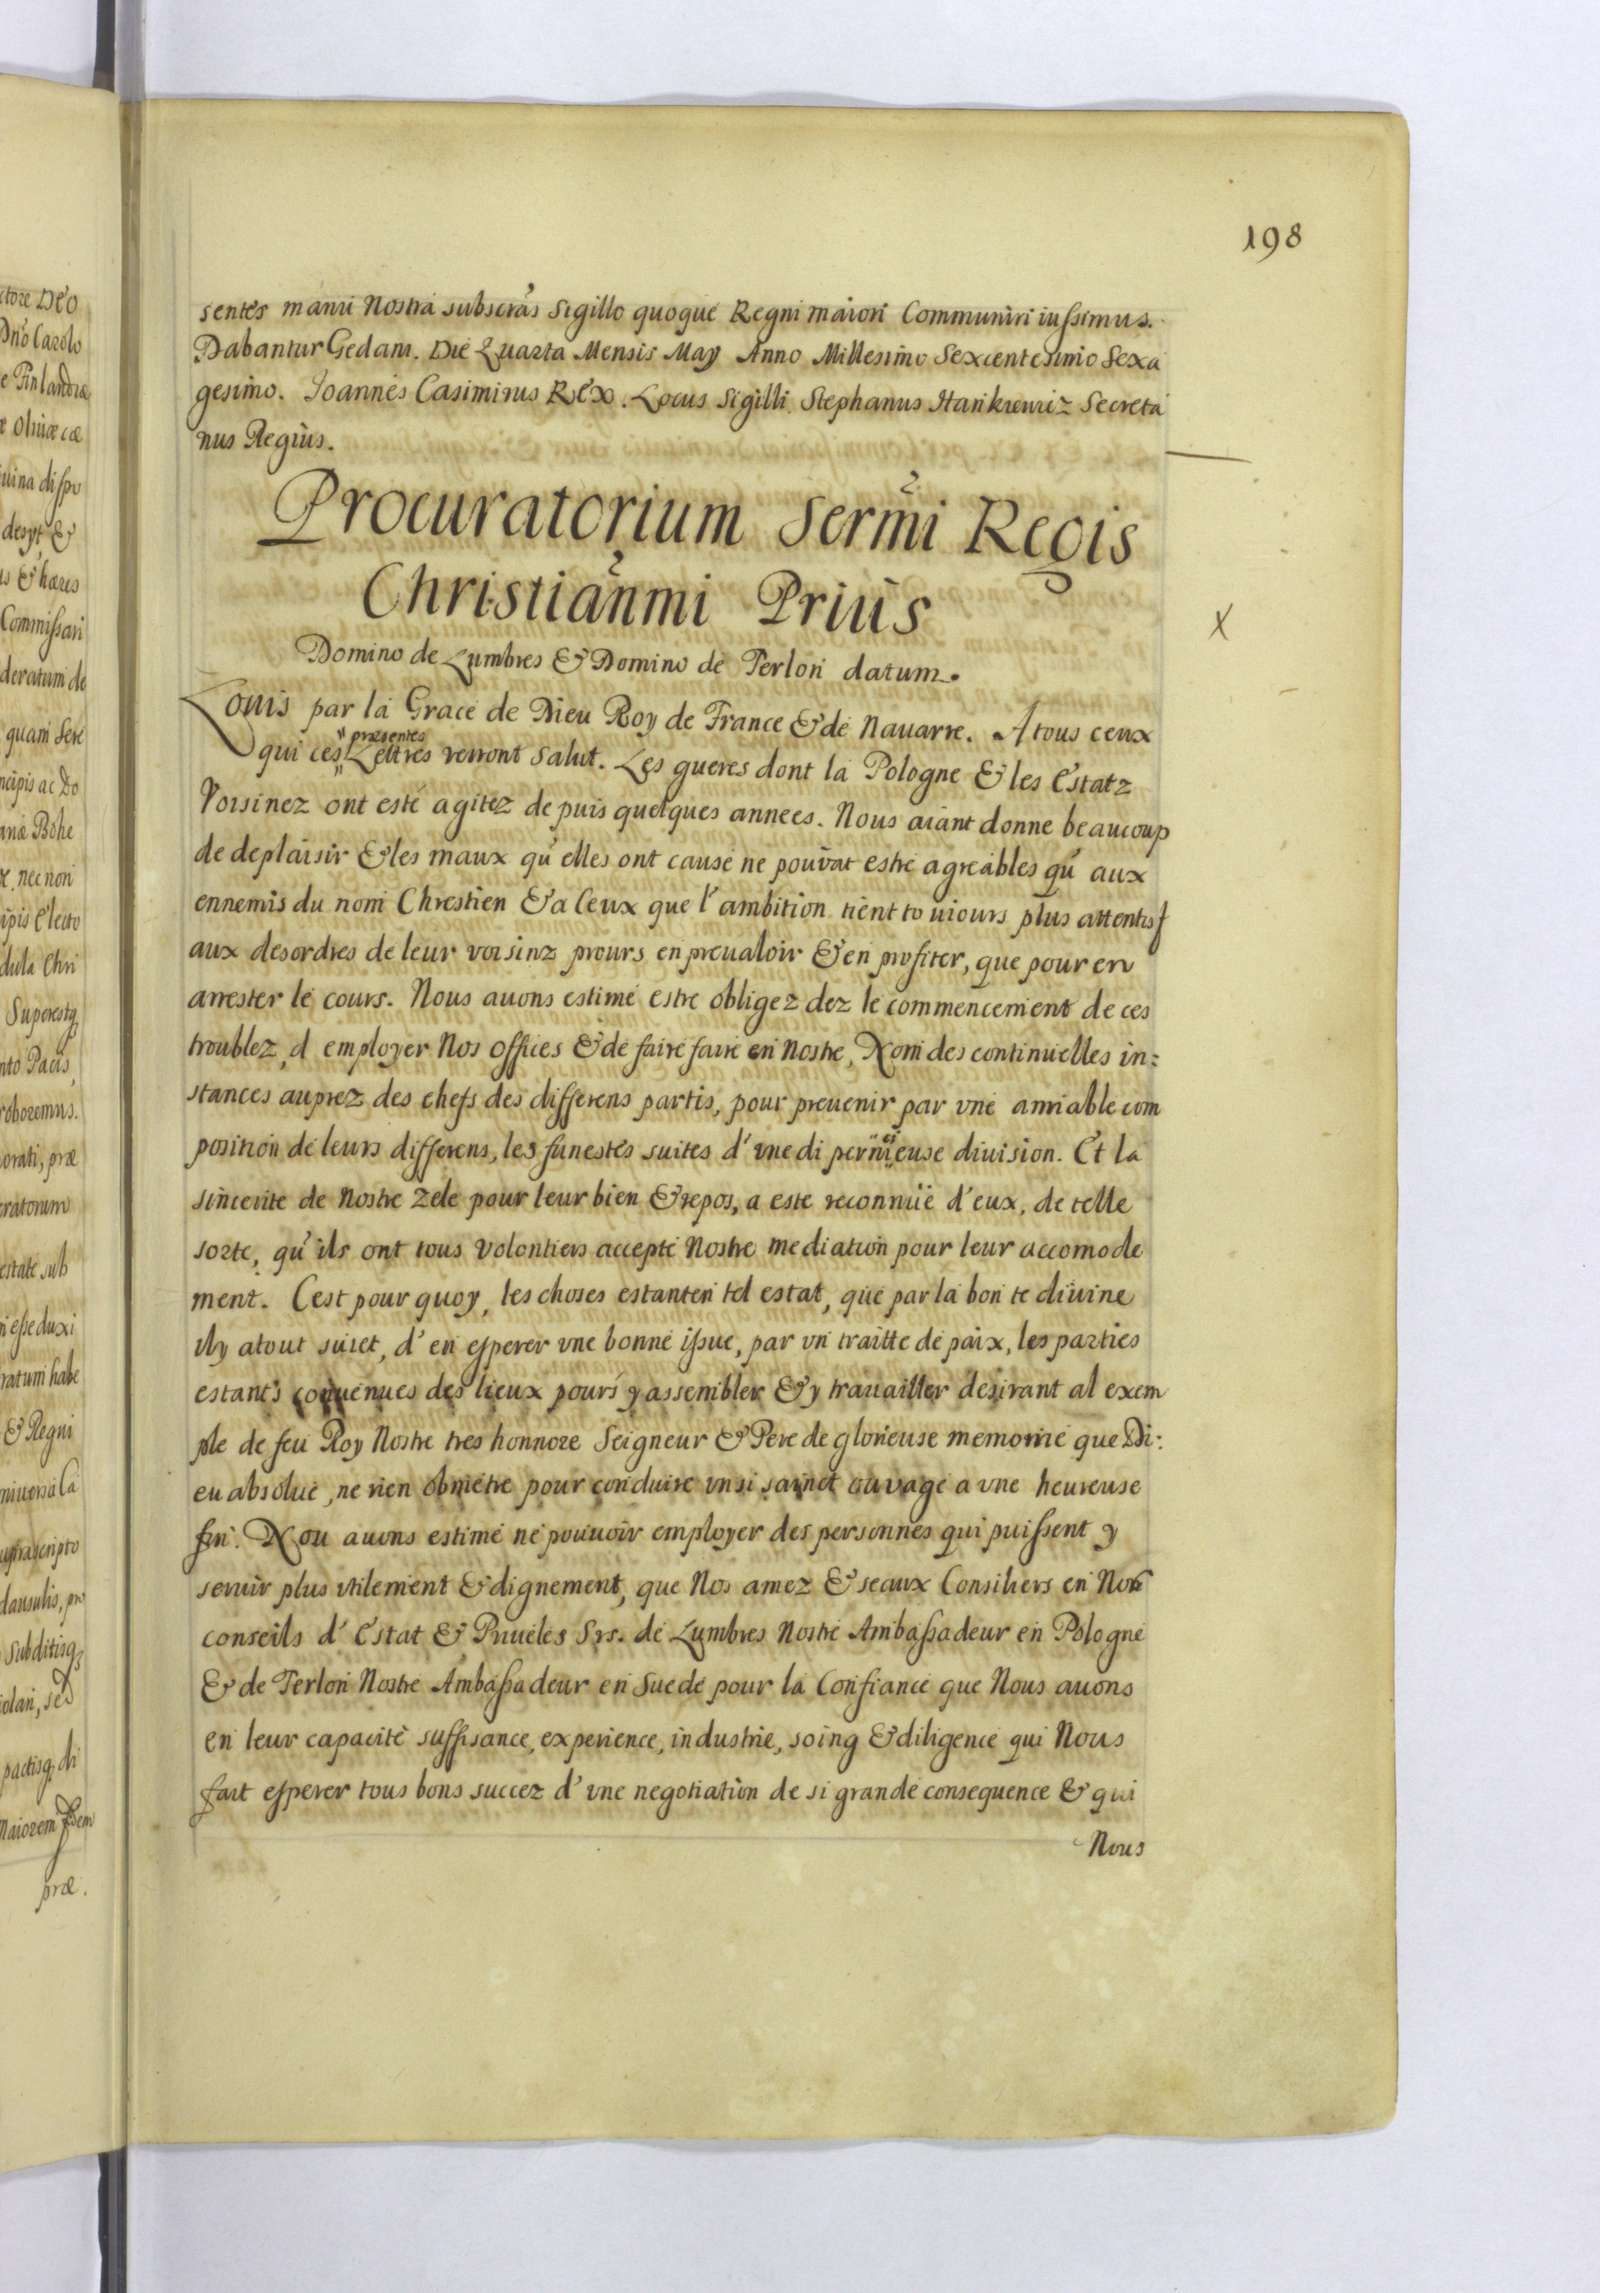 198
sentes manu Nostra subscras Sigillo quoque Regni maiori Communiri iussimus.
Dabantur Gedani. Die Quarta Mensis May Anno Millesimo Sexcentesimo Sexa
gesimo. Joannes Casimirus Rex. Locus Sigilli. Stephanus Hankiewiz Secreta
rius Regius.
Procuratorium Sermi Regis
Christianmi Prius
Domino de Lumbres & Domino de Terlon datum.
Louis par la Grace de Dieu Roy de France & de Nauarre. A tous ceux
qui ces presentes Lettres verront salut. Les gueres dont la Pologne & les Estatz
Voisinez ont esté agitez depuis quelques annees. Nous aiant donne beaucoup
de deplaisir & les maux qu'elles ont cause ne pouvat estre agreables qu'aux
ennemis du nom Chrestien & a Ceux que l'ambition tient touiours plus attentif
aux desordres de leur voisinz prours en preualoir & en profiter, que pour en
arrester le cours. Nous auons estimé estre obligez dez le commencement de ces
troublez, d employer Nos offices & de faire faire en Nostre, Nom des continuelles in:
stances auprez des chefs des differens partis, pour preuenir par vne amiable com
position de leurs differens, les funestes suites d'vne di pernicieuse diuision. Et la
sincerite de Nostre zele pour leur bien & repos, a este reconnuë d'eux, de telle
sorte, qu'ils ont tous volontiers accepté Nostre mediation pour leur accomode
ment. Cest pour quoy, les choses estanten tel estat, que par la bon te diuine
ily atout suiet, d'en esperer vne bonne issue, par vn traitte de paix, les parties
estants conuenues des lieux pours y assembler & y trauailler desirant al exem
ple de feu Roy Nostre tres honnore Seigneur & Pere de glorieuse memorie que Di:
eu absolue, ne rien obmetre pour conduire vn si sainct ouvage a vne heureuse
fin. Nou auons estimé ne pouuoir employer des personnes qui puissent y
seruir plus vtilement & dignement, que Nos amez & seaux Consiliers en Nos
conseils d'Estat & Priueles Srs. de Lumbres Nostre Ambassadeur en Pologne
& de Terlon Nostre Ambassadeur en Suede pour la Confiance que Nous auons
en leur capacité suffisance, experience, industrie, soing & diligence qui Nous
fait esperer tous bons succez d'vne negotiation de si grande consequence & qui
Nous